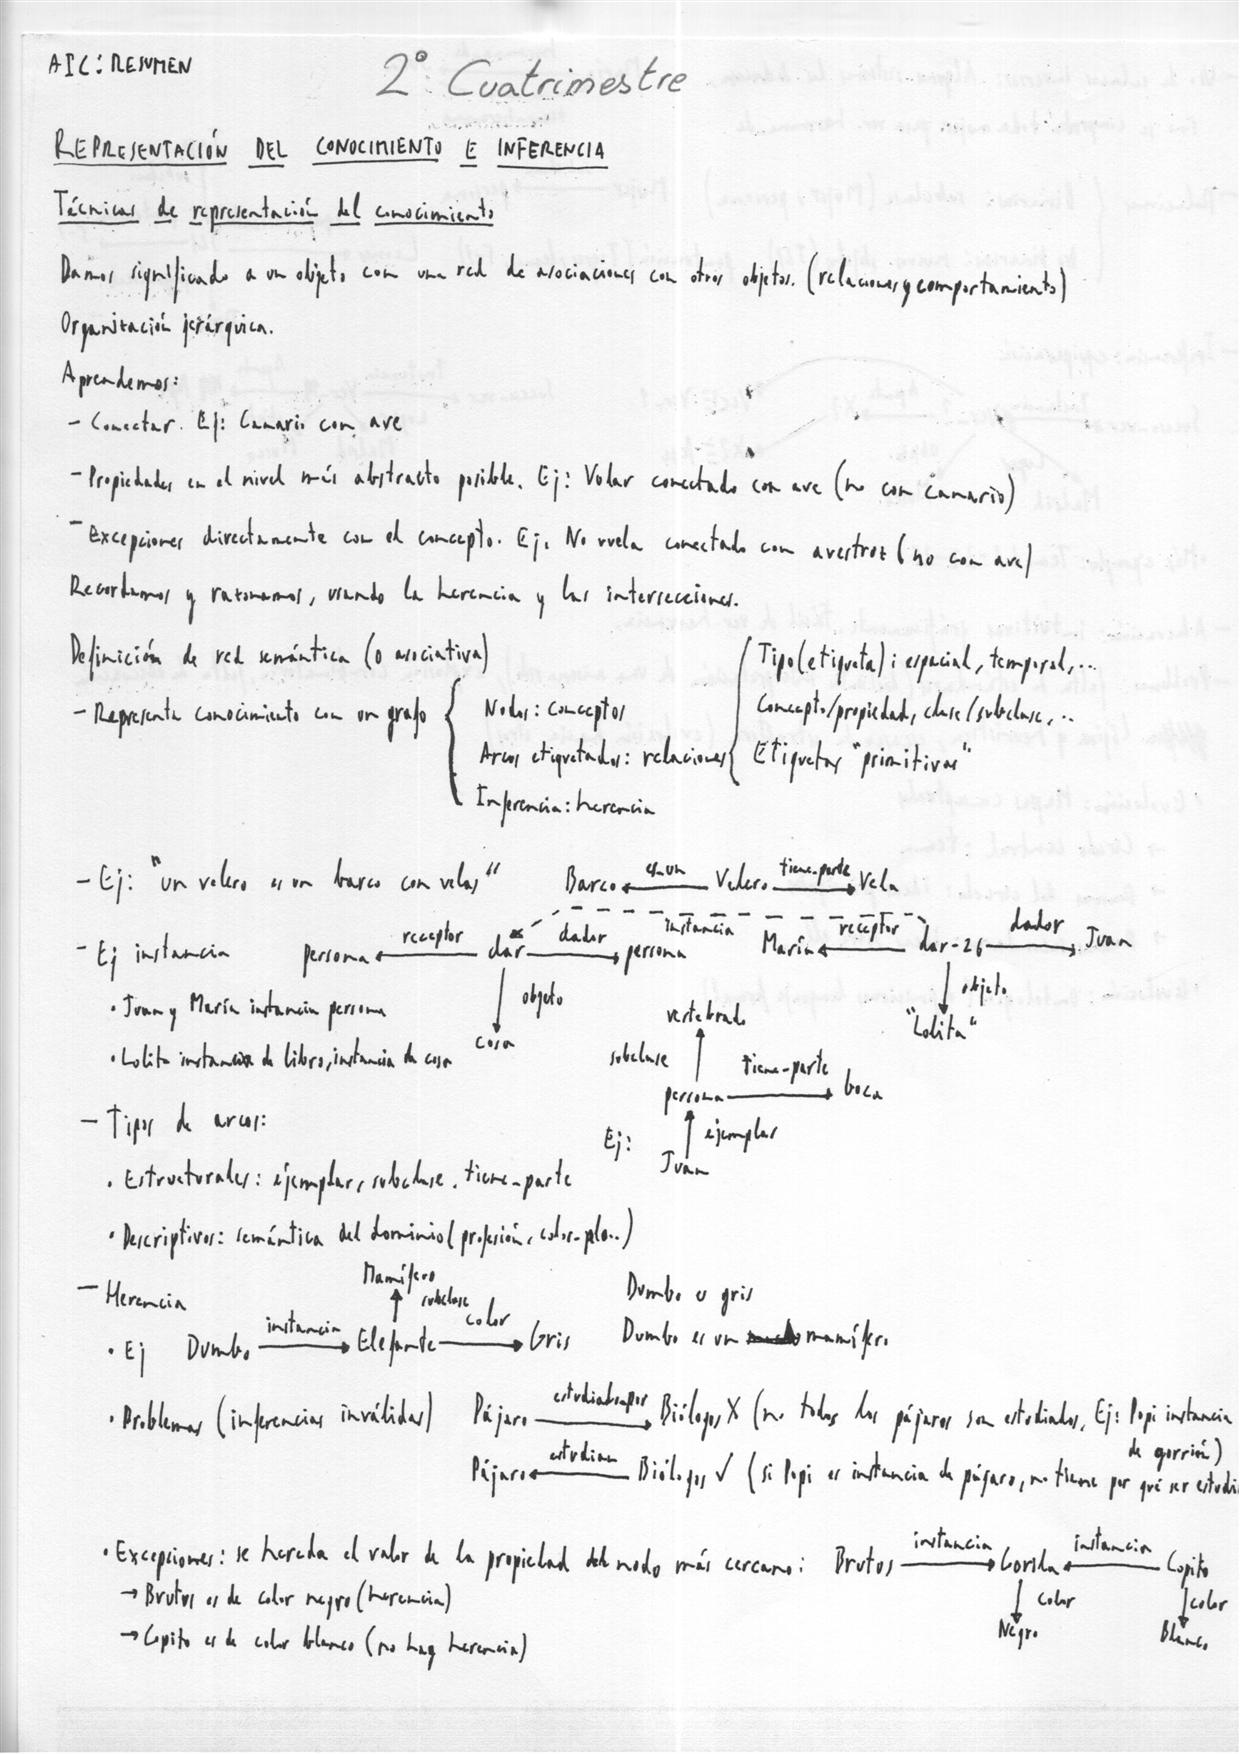 AIC: RESUMEN
2º Cuatrimestre
REPRESENTACIÓN DEL CONOCIMIENTO E INFERENCIA
Técnicas de representación del conocimiento
Damos significado a un objeto con una red de asociaciones con otros objetos. (relaciones y comportamiento)
Organización jerárquica.
Aprendemos:
- Conectar. Ej: Canario con ave
- Propiedades en el nivel más abstracto posible. Ej: Volar conectado con ave (no con canario)
- Excepciones directamente con el concepto. Ej. No vuela conectado con avestruz (no con ave)
Recordamos y razonamos, usando la herencia y las intersecciones.
Definición de red semántica (o asociativa)
- Representa conocimiento con un grafo
Nodos: conceptos
Arcos etiquetados: relaciones
Inferencia: herencia
Tipo (etiqueta): espacial, temporal,...
Concepto/propiedad, clase/subclase,..
Etiquetas "primitivas"
- Ej: "un velero es un barco con velas"
Barco es-un Velero tiene-parte Vela
- Ej instancia
persona receptor dar dador persona instancia María receptor dar-26 dador Juan
objeto
cosa
objeto
"Lolita"
• Juan y María instancia persona
• Lolita instancia de libro, instancia de cosa
vertebrado
subclase
persona tiene-parte boca
Ej:
ejemplar
Juan
- Tipos de arcos:
• Estructurales: ejemplar, subclase, tiene-parte
• Descriptivos: semántica del dominio (profesión, color-pelo..)
- Herencia
• Ej
Mamífero
subclase
Dumbo instancia Elefante color Gris
Dumbo es gris
Dumbo es un mamífero
• Problemas (inferencias inválidas)
Pájaro estudiado por Biólogos X (no todos los pájaros son estudiados, Ej: Popi instancia
de gorrión)
Pájaro estudian Biólogos ✓ (si Popi es instancia de pájaro, no tiene por qué ser estudi
• Excepciones: se hereda el valor de la propiedad del nodo más cercano:
Brutus instancia Gorila instancia Copito
color
Negro
color
Blanco
→ Brutus es de color negro (herencia)
→ Copito es de color blanco (no hay herencia)